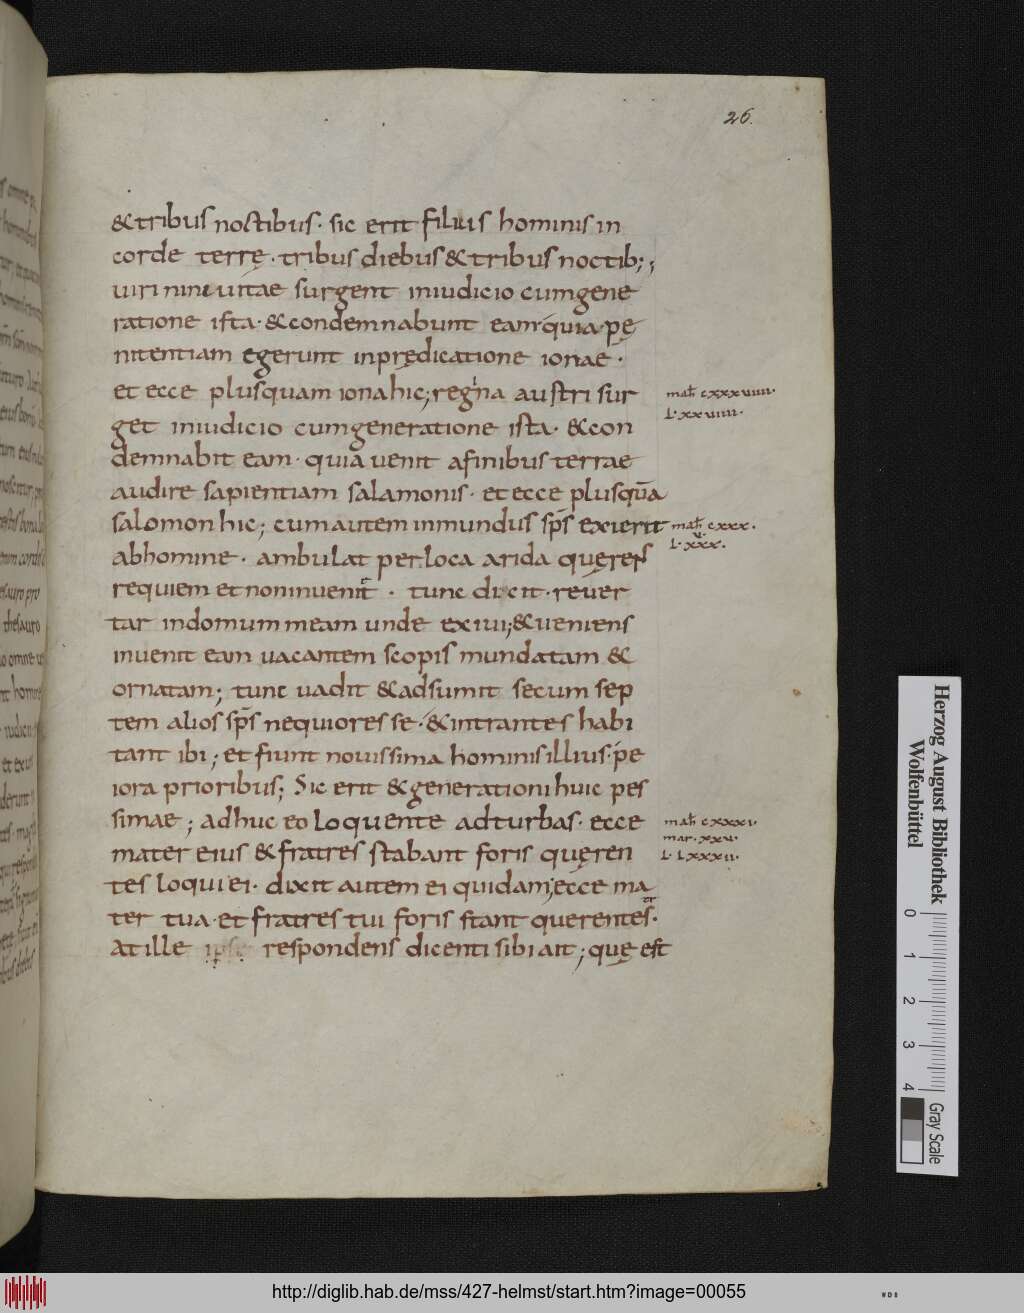 26.
&tribus noctibus· sic erit filius hominis in
corde terrę· tribus diebus & tribus noctib;;
uiri nineuitae surgent iniudicio cumgene
ratione ista· & condemnabunt eam· quia pę
nitentiam egerunt inprędicatione ionae·
et ecce plusquam iona hic; regina austri sur
math cxxxuiiii·
L· xxuiiii·
get iniudicio cumgeneratione ista· & con
demnabit eam· quia uenit afinibus terrae
audire sapientiam salamonis· et ecce plusquā
salomon hic; cum autem inmundus sp̄s exierit
math cxxx·
L· xxx·
abhomine· ambulat per loca arida quęrens
requiem et non inuenit· tunc dicit· reuer
tar indomum meam unde exiui; & ueniens
inuenit eam uacantem scopis mundatam &
ornatam; tunc uadit & adsumit secum sep
tem alios sp̄s nequiores se· & intrantes habi
tant ibi; et fiunt nouissima hominis illius· pe
iora prioribus; Sic erit & generationi huic pes
simae; adhuc eo loquente adturbas· ecce
math cxxxi·
mar· xxxu·
L· Lxxxii·
mater eius & fratres stabant foris quęren
tes loqui ei· dixit autem ei quidam; ecce ma
ter tua· et fratres tui foris stant querentes·
At ille ipse respondens dicenti sibi ait; quę est
Herzog August Bibliothek
Wolfenbüttel
0 1 2 3 4
Gray Scale
http://diglib.hab.de/mss/427-helmst/start.htm?image=00055